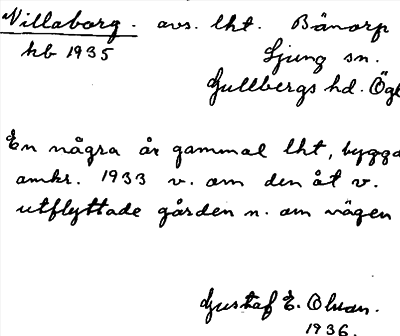 Villaborg. avs. lht. Bänorp
kb 1935 Ljung sn.
Gullbergs hd. Ögl
En några år gammal lht, byggd
omkr. 1933 v. om den åt v.
utflyttade gården n. om vägen
Gustaf E. Olson.
1936.